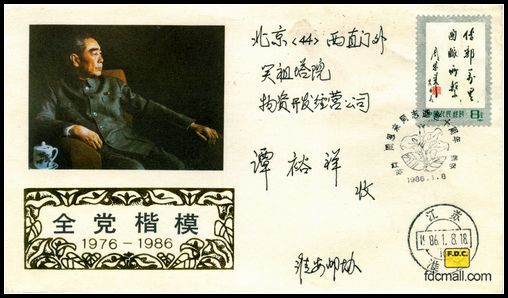 全党楷模
1976-1986
北京(44) 西直门外
笑祖塔院
物资开发经营公司
谭裕祥
收
淮安邮协
传邮万里
国脉所系
周恩来
中国人民邮政
8分
周恩来同志逝世十周年
1986.1.8
江苏
1986.1.8.18
淮
F.D.C.
fdcmall.com